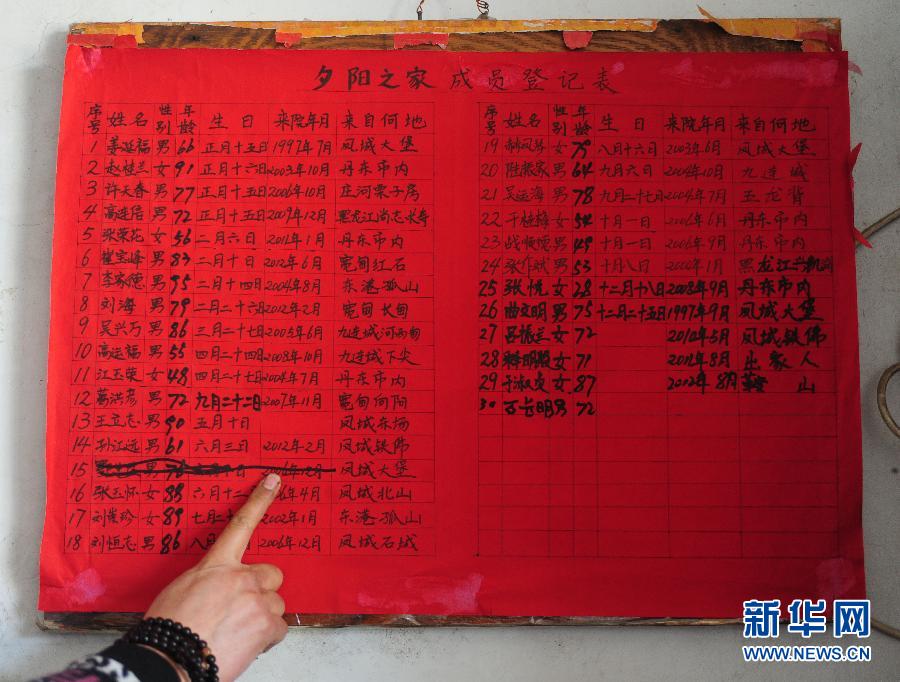 夕阳之家 成员登记表
序号 姓名 性别 年龄 生日 来院年月 来自何地
1 姜延福 男 66 正月十五日 1997年7月 凤城大堡
2 赵桂兰 女 91 正月十六日 2003年10月 丹东市内
3 许天春 男 77 正月十五日 2006年10月 庄河栗子房
4 高连居 男 72 正月十五日 2009年12月 黑龙江尚志
5 张荣花 女 56 二月六日 2012年1月 丹东市内
6 崔宝峰 男 83 二月十日 2012年6月 宽甸红石
7 李家德 男 95 二月十四日 2004年8月 东港孤山
8 刘海 男 79 二月二十六 2012年2月 宽甸长甸
9 吴兴万 男 86 三月二十七日 2005年6月 九连城河西甸
10 高运福 男 55 四月二十四日 2008年10月 九连城下尖
11 江玉荣 女 48 四月二十七日 2004年7月 丹东市内
12 葛洪彦 男 72 九月二十二日 2007年11月 宽甸向阳
13 王立志 男 90 五月十日 凤城东汤
14 孙江远 男 61 六月三日 2012年2月 凤城铁佛
15 男 2006年12月 凤城大堡
16 张玉怀 女 88 六月十二 年4月 凤城北山
17 刘崇珍 女 89 七月二 2002年1月 东港孤山
18 刘恒志 男 86 八月 2006年12月 凤城石城
序号 姓名 性别 年龄 生日 来院年月 来自何地
19 郝凤琴 女 79 八月十六日 2003年6月 凤城大堡
20 陈振家 男 64 九月六日 2004年10月 九连城
21 吴运海 男 78 九月二十七日 2004年7月 五龙背
22 于桂梅 女 54 十月一日 2006年6月 丹东市内
23 战顺德 男 49 十月一日 2006年9月 丹东市内
24 张作斌 男 53 十月八日 2000年1月 黑龙江
25 张悦 女 28 十二月十八日 2008年9月 丹东市内
26 曲文明 男 75 十二月二十五日 1997年9月 凤城大堡
27 吕振兰 女 72 2012年5月 凤城铁佛
28 释明 女 71 2012年8月 出家人
29 于淑贞 女 87 2012年8月 山
30 石长明 男 72
新华网
WWW.NEWS.CN